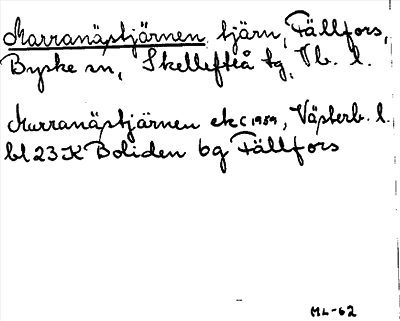 Marranästjärnen tjärn, Fällfors,
Byske sn, Skellefteå tg, Vb. l.
Murranästjärnen ekC 1959, Västerb. l.
bl 23 K Boliden 6g Fällfors
ML-62